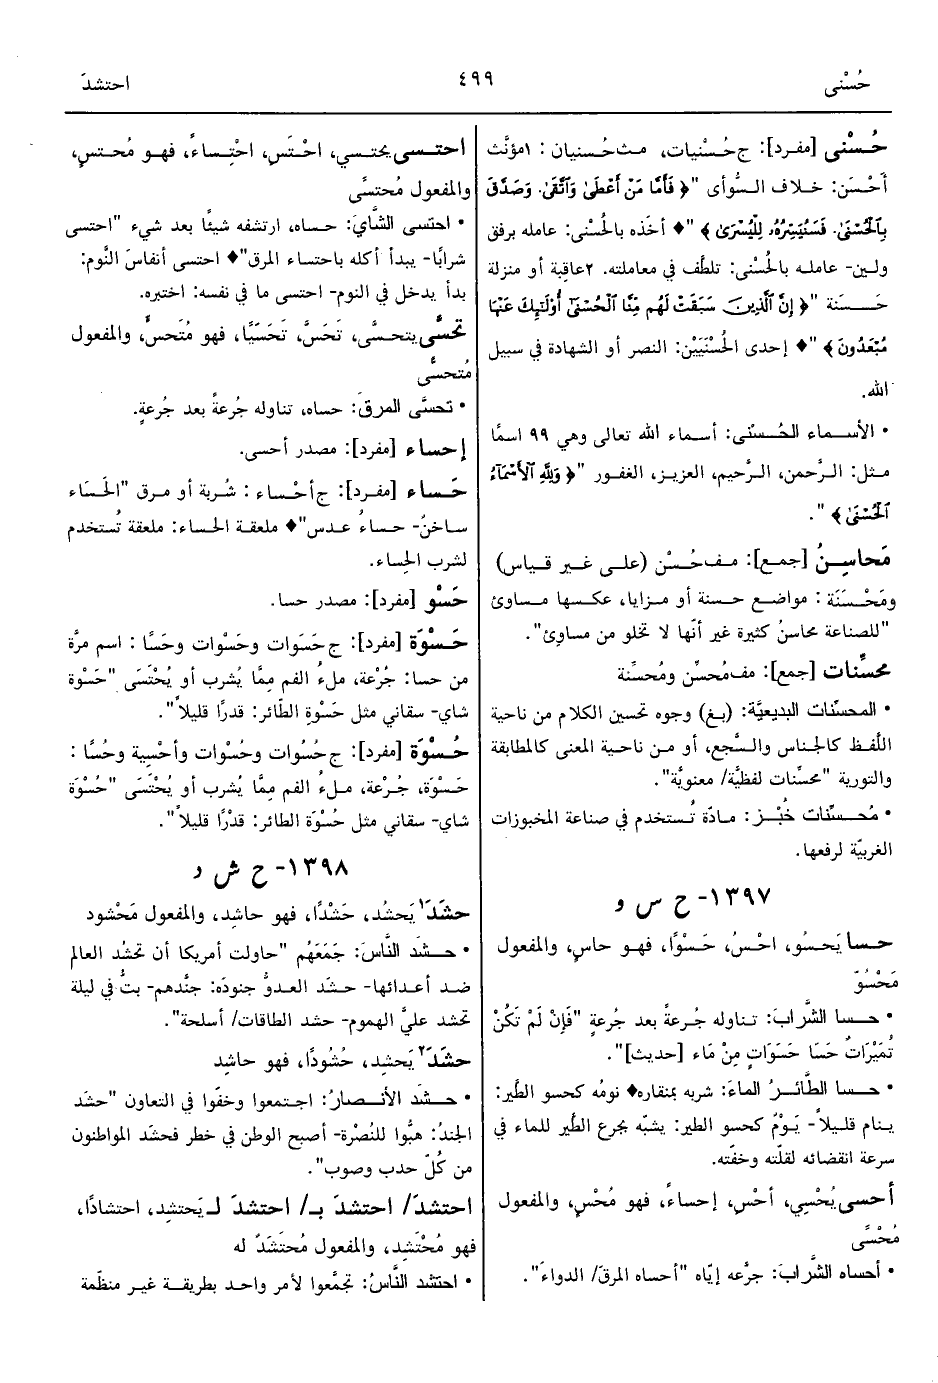 حُسْنى
٤٩٩
احتشدَ
حُسْنى [مفرد]: ج حُسْنيات، مث حُسنيان: ١ مؤنَّث
أَحْسَن: خلاف السُّوأى "﴿ فَأَمَّا مَنْ أَعْطَىٰ وَاتَّقَىٰ. وَصَدَّقَ
بِالْحُسْنَىٰ. فَسَنُيَسِّرُهُۥ لِلْيُسْرَىٰ ﴾ "♦ أخذه بالحُسْنى: عامله برفق
ولين- عامله بالحُسْنى: تلطَّف في معاملته. ٢ عاقبة أو منزلة
حَسَنة "﴿ إِنَّ الَّذِينَ سَبَقَتْ لَهُم مِّنَّا الْحُسْنَىٰٓ أُوْلَٰٓئِكَ عَنْهَا
مُبْعَدُونَ ﴾ "♦ إحدى الحُسْنَيَيْن: النصر أو الشهادة في سبيل
الله.
• الأسماء الحُسنى: أسماء الله تعالى وهي ٩٩ اسمًا
مثل: الرَّحمن، الرَّحيم، العزيز، الغفور "﴿ وَلِلَّهِ الْأَسْمَآءُ
الْحُسْنَىٰ ﴾ ".
مَحاسِنُ [جمع]: مف حُسْن (على غير قياس)
ومَحْسَنَة: مواضع حسنة أو مزايا، عكسها مساوئ
"للصناعة محاسنُ كثيرة غير أنّها لا تخلو من مساوئ".
محسِّنات [جمع]: مف مُحسِّن ومُحسِّنة
• المحسِّنات البديعيَّة: (بغ) وجوه تحسين الكلام من ناحية
اللَّفظ كالجناس والسَّجع، أو من ناحية المعنى كالمطابقة
والتورية "محسِّنات لفظيَّة/ معنويَّة".
• مُحسِّنات خُبْز: مادَّة تُستخدم في صناعة المخبوزات
الغربيّة لرفعها.
١٣٩٧- ح س و
حسا يَحسُو، احْسُ، حَسْوًا، فهو حاسٍ، والمفعول
مَحْسُوّ
• حسا الشَّرابَ: تناوله جُرعةً بعد جُرعةٍ "فَإِنْ لَمْ تَكُنْ
تُمَيْرَاتٌ حَسَا حَسَوَاتٍ مِنْ مَاء [حديث]".
• حسا الطَّائرُ الماءَ: شربه بمنقاره♦ نومُه كحسو الطَّير:
ينام قليلاً- يَوْمٌ كحسو الطير: يشبّه بجرع الطَّير للماء في
سرعة انقضائه لقلّته وخفّته.
أحسى يُحْسِي، أَحْسِ، إحساءً، فهو مُحْسٍ، والمفعول
مُحْسًى
• أحساه الشَّرابَ: جرَّعه إيّاه "أحساه المرقَ/ الدواءَ".
احتسى يحتسي، احْتَسِ، احْتِساءً، فهو مُحتسٍ،
والمفعول مُحتسًى
• احتسى الشَّايَ: حساه، ارتشفه شيئًا بعد شيء "احتسى
شرابًا- يبدأ أكله باحتساء المرق"♦ احتسى أنفاسَ النَّوم:
بدأ يدخل في النوم- احتسى ما في نفسه: اختبره.
تحسَّى يتحسَّى، تَحَسَّ، تَحَسِّيًا، فهو مُتَحسٍّ، والمفعول
مُتحسًّى
• تحسَّى المرقَ: حساه، تناوله جُرعةً بعد جُرعةٍ.
إحساء [مفرد]: مصدر أحسى.
حَساء [مفرد]: ج أحْساء: شُربة أو مرق "الحَسَاء
ساخنٌ- حساءُ عدس"♦ ملعقة الحساء: ملعقة تُستخدم
لشرب الحِساء.
حَسْو [مفرد]: مصدر حسا.
حَسْوَة [مفرد]: ج حَسَوات وحَسْوات وحَسًا: اسم مرَّة
من حسا: جُرْعة، ملءُ الفم مِمَّا يُشرب أو يُحْتَسَى "حَسْوة
شاي- سقاني مثل حَسْوةِ الطَّائر: قدرًا قليلاً".
حُسْوَة [مفرد]: ج حُسُوات وحُسْوات وأحْسِية وحُسًا:
حَسْوَة، جُرعة، ملءُ الفم مِمَّا يُشرب أو يُحْتَسَى "حُسْوة
شاي- سقاني مثل حُسْوَة الطائر: قدْرًا قليلاً".
١٣٩٨- ح ش د
حشَدَ١ يَحشُد، حَشْدًا، فهو حاشِد، والمفعول مَحْشود
• حشَد النَّاسَ: جَمَعَهُم "حاولت أمريكا أن تحشُد العالم
ضد أعدائها- حشَد العدوُّ جنودَه: جنَّدهم- بتُّ في ليلة
تحشد عليَّ الهموم- حشد الطاقات/ أسلحة".
حشَدَ٢ يَحشِد، حُشُودًا، فهو حاشِد
• حشَد الأنصارُ: اجتمعوا وخفّوا في التعاون "حشَد
الجندُ: هبُّوا للنُصْرة- أصبح الوطن في خطر فحشَد المواطنون
من كُلّ حدب وصوب".
احتشدَ/ احتشدَ بـ/ احتشدَ لـ يَحتشِد، احتشادًا،
فهو مُحْتَشِد، والمفعول مُحتَشَدٌ له
• احتشد النَّاسُ: تجمَّعوا لأمر واحد بطريقة غير منظَّمة